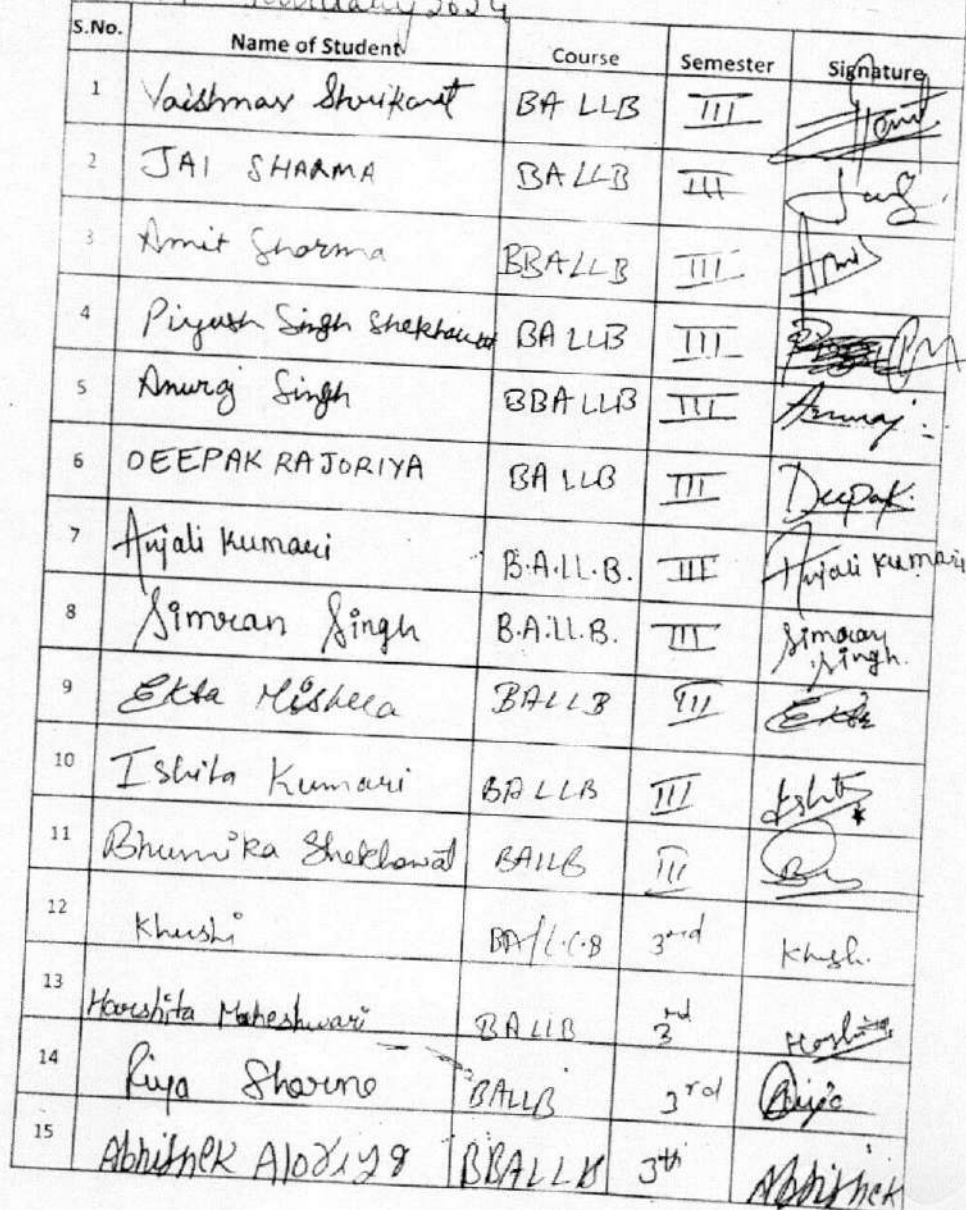 February 2024
S.No. Name of Student Course Semester Signature
1 Vaishnav Shrikant BA LLB III
2 JAI SHARMA BA LLB III
3 Amit Sharma BBALLB III Amit
4 Piyush Singh Shekhawat BA LLB III
5 Anuraj Singh BBALLB III Anuraj
6 DEEPAK RAJORIYA BA LLB III Deepak
7 Anjali Kumari B.A.LL.B. III Anjali Kumari
8 Simran Singh B.A.LL.B. III Simran Singh.
9 Ekta Mishra BALLB III Ekta
10 Ishita Kumari BALLB III Ishita
11 Bhumika Shekhawat BALLB III
12 Khushi BA/L.L.B 3rd Khushi
13 Harshita Maheshwari BALLB 3rd
14 Riya Sharma BALLB 3rd Riya
15 Abhishek BBALLB 3th Abhishek